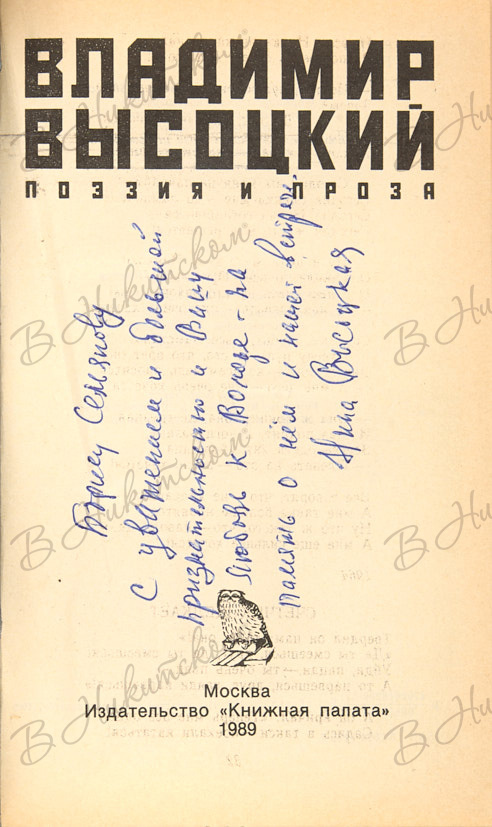 ВЛАДИМИР
ВЫСОЦКИЙ
ПОЭЗИЯ И ПРОЗА
Борису Сельянову
С уважением и большой
признательностью и Вашу
любовь к Володе - на
память о нём и нашей встрече.
Нина Высоцкая
Москва
Издательство «Книжная палата»
1989
В Никитском
В Никитском
В Никитском
В Никитском
В Никитском